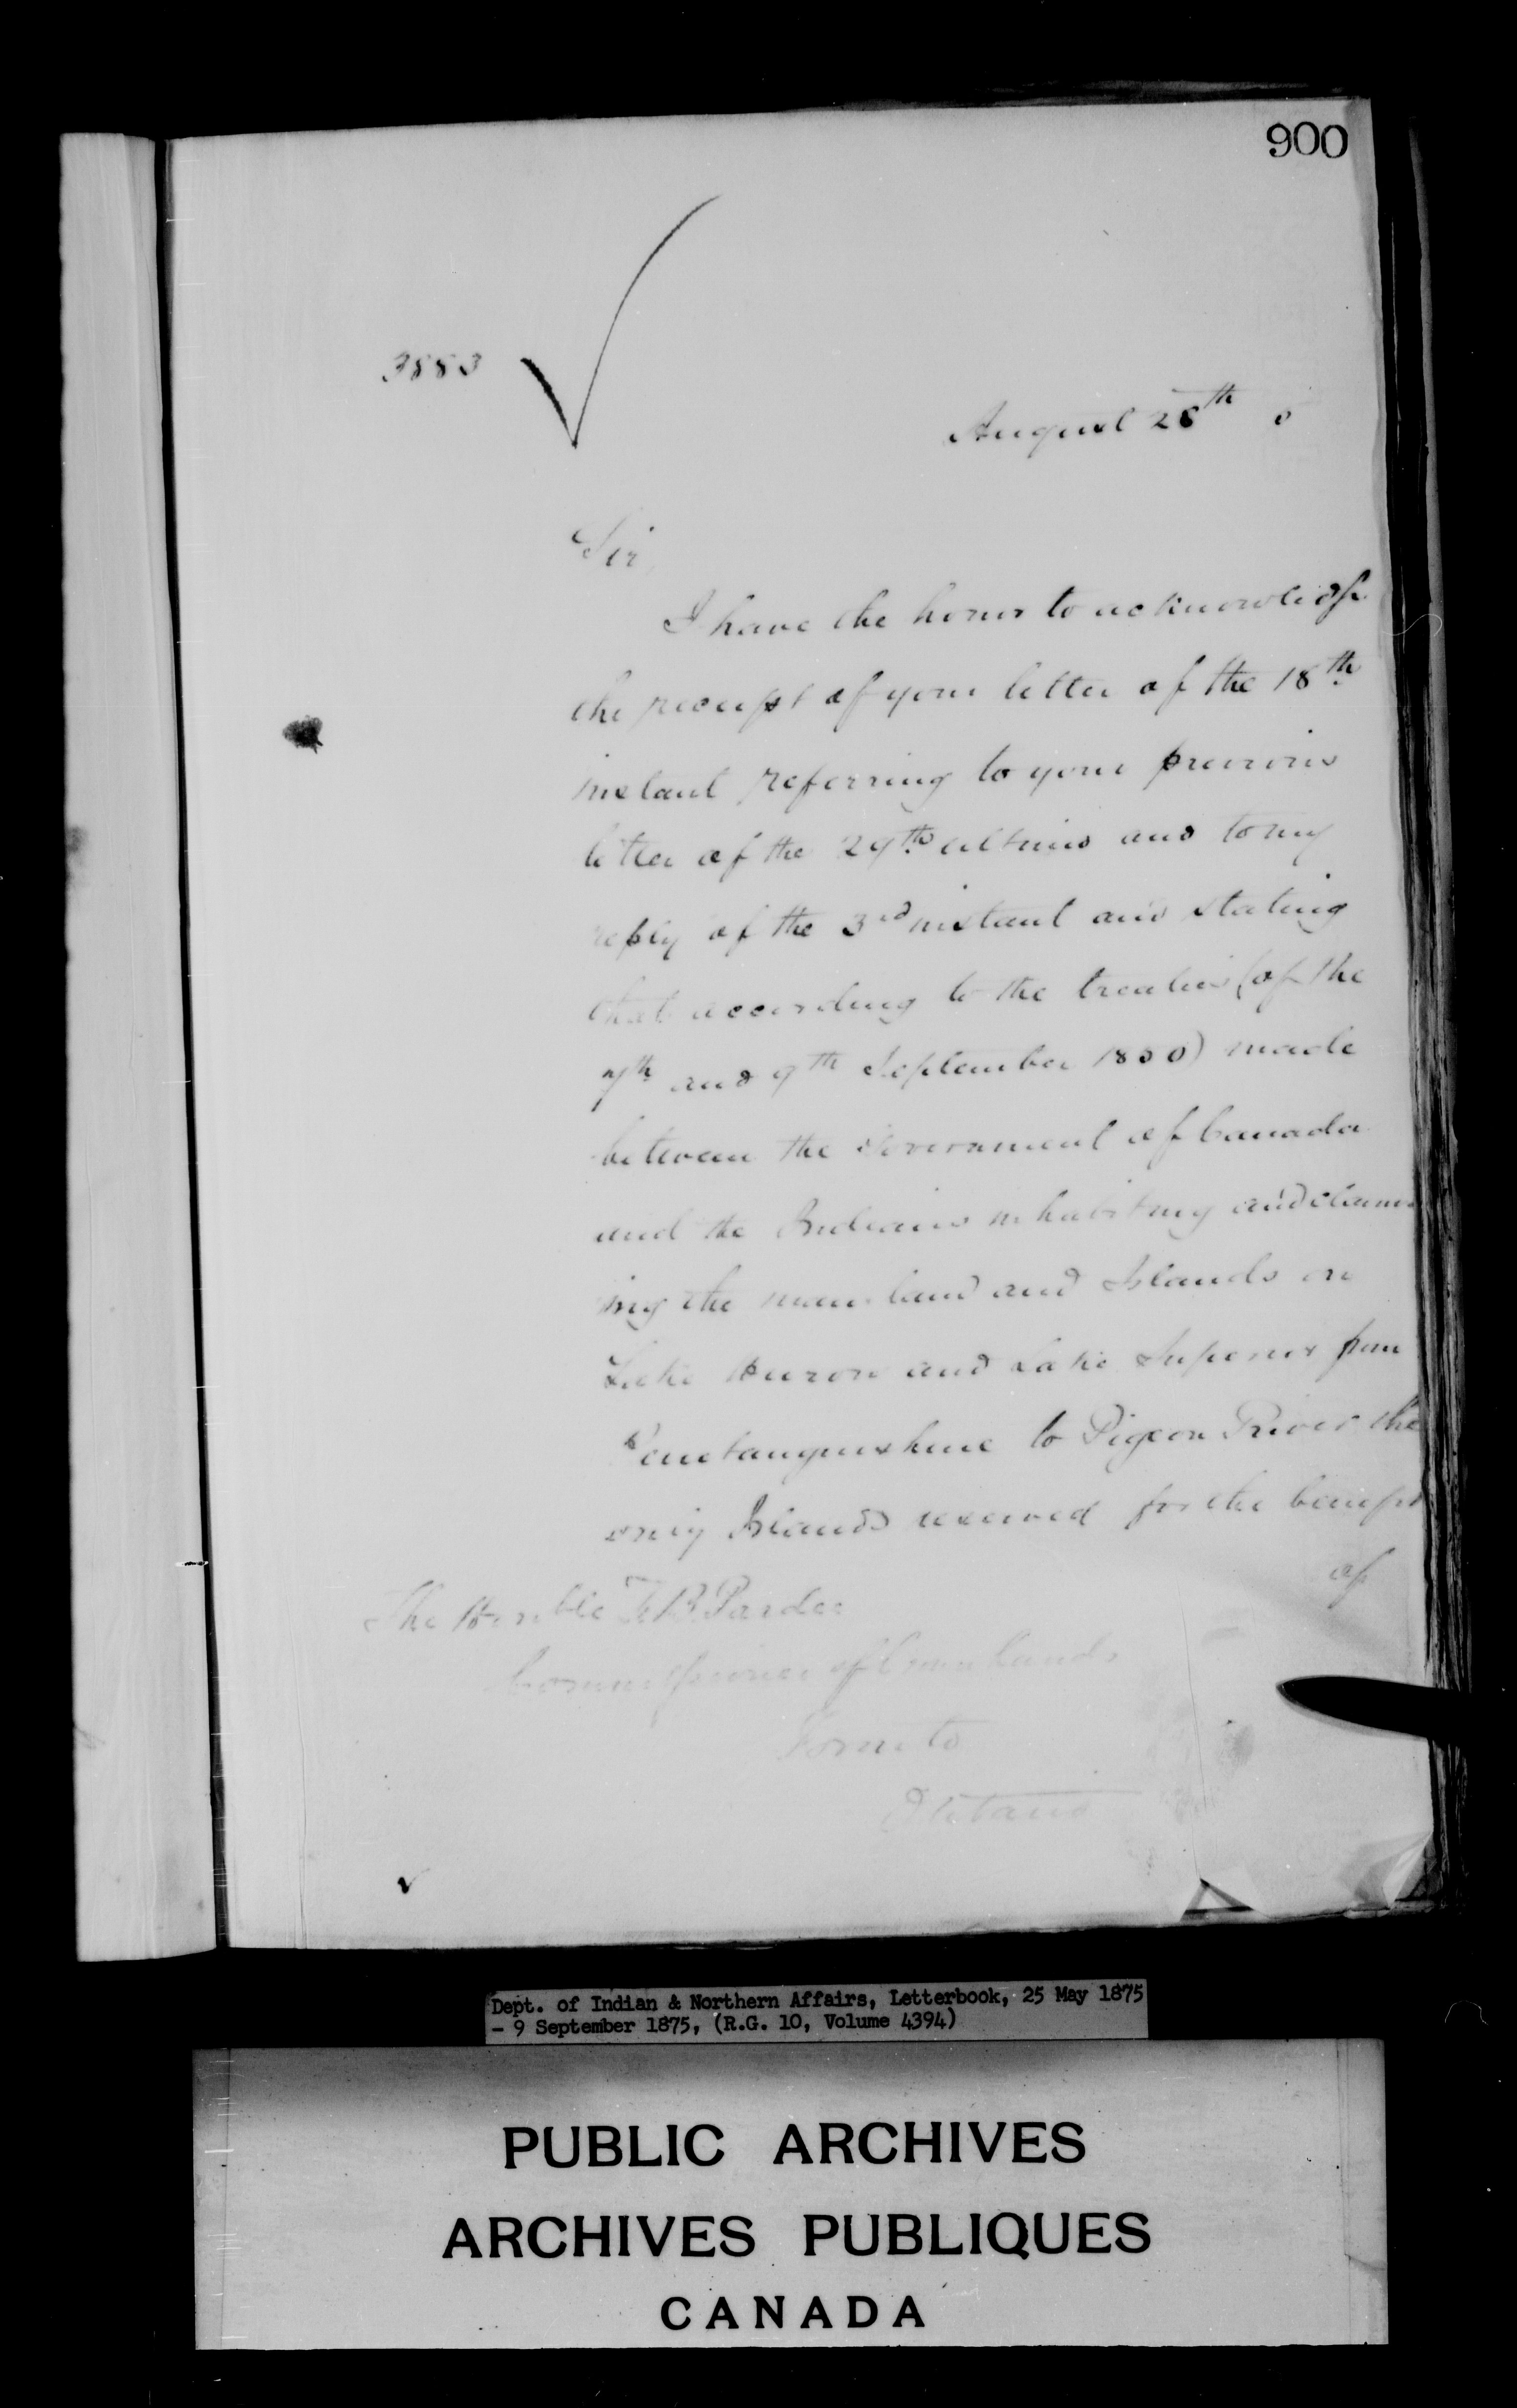 900
3883
August 28th 5
Sir,
I have the honor to acknowledge
the receipt of your letter of the 18th
instant referring to your previous
letter of the 29th ultimo and to my
reply of the 3rd instant and stating
that according to the treaties (of the
7th and 9th September 1850) made
between the Government of Canada
and the Indians inhabiting and claim-
ing the main land and Islands on
Lake Huron and Lake Superior from
Penetanguishene to Pigeon River the
only Islands reserved for the benefit
of
The Honble T. B. Pardee
Commissioner of Crown Lands
Toronto
Ontario
Dept. of Indian & Northern Affairs, Letterbook, 25 May 1875
- 9 September 1875, (R.G. 10, Volume 4394)
PUBLIC ARCHIVES
ARCHIVES PUBLIQUES
CANADA